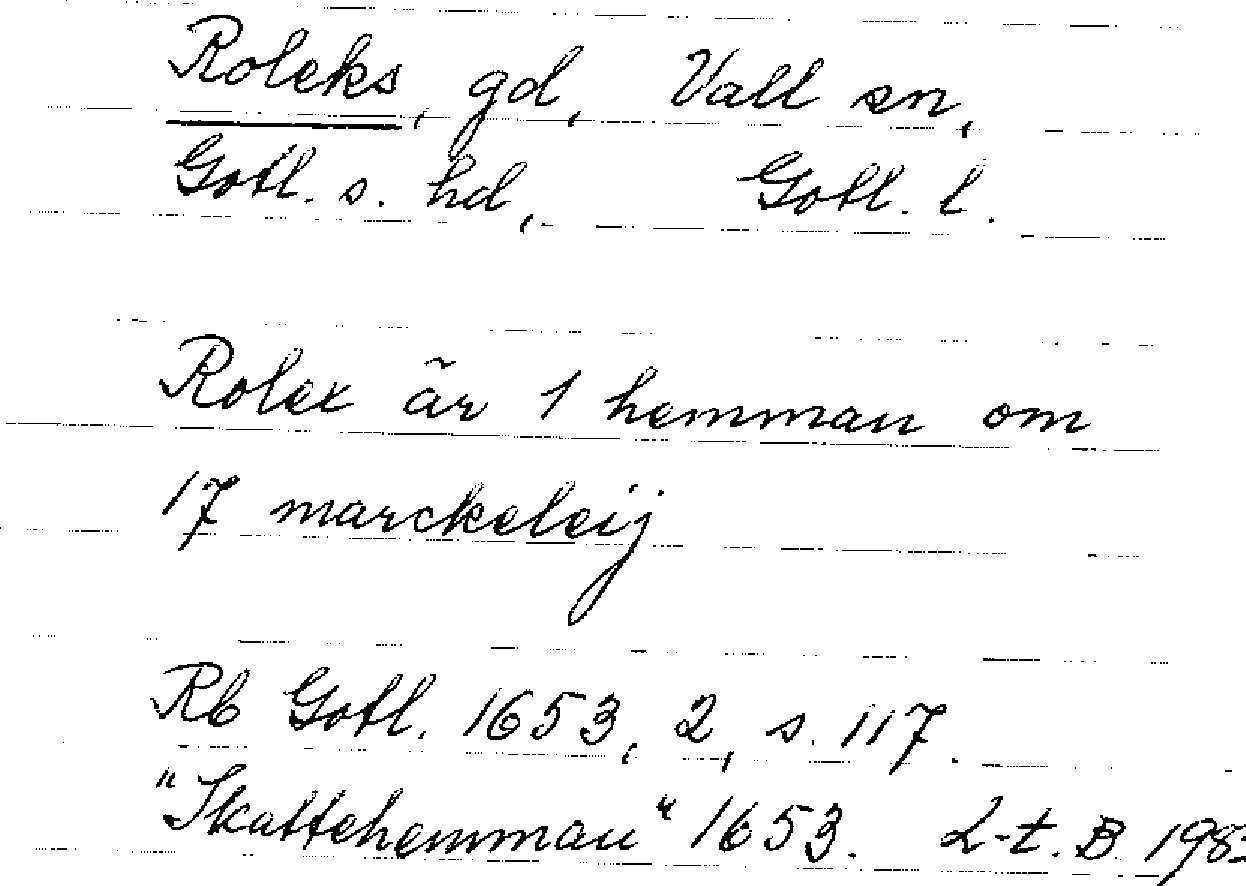 Roleks, gd, Vall sn,
Gotl. s. hd, Gotl. l.
Rolex är 1 hemman om
17 marckeleij
Rb Gotl. 1653, 2, s. 117.
"Skattehemman" 1653. L-t. B.